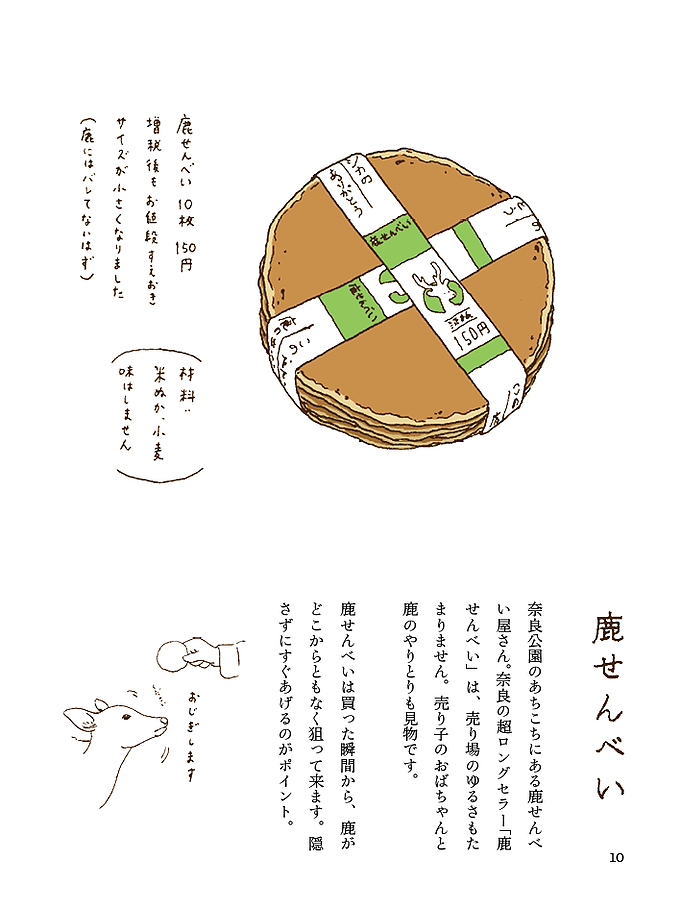 鹿せんべい
奈良公園のあちこちにある鹿せんべ
い屋さん。奈良の超ロングセラー「鹿
せんべい」は、売り場のゆるさもた
まりません。売り子のおばちゃんと
鹿のやりとりも見物です。
鹿せんべいは買った瞬間から、鹿が
どこからともなく狙って来ます。隠
さずにすぐあげるのがポイント。
鹿せんべい 10枚 150円
増税後もお値段すえおき
サイズが小さくなりました
(鹿にはバレてないはず)
材料:
米ぬか、小麦
味はしません
シカの
ありがとう
鹿せんべい
150円
鹿せんべい
おじぎします
10